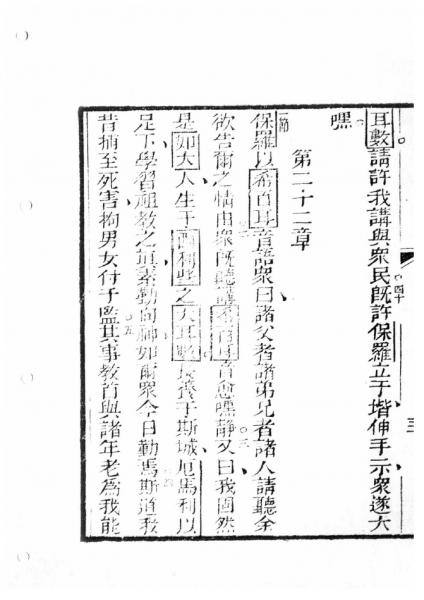 耳數請許我講與衆民旣許保羅立于堦伸手示衆遂大
嘿
第二十二章
保羅以希百耳音語衆曰諸父者諸弟兄者諸人請聽余
欲告爾之情由衆旣聽講希百耳音愈嘿靜又曰我固然
是如大人生于西利些之大耳數長養于斯城厄馬利以
足下學習祖教之眞素勤向神如爾衆今日勤焉斯道我
昔捕至死害拘男女付于監其事教首與諸年老爲我能